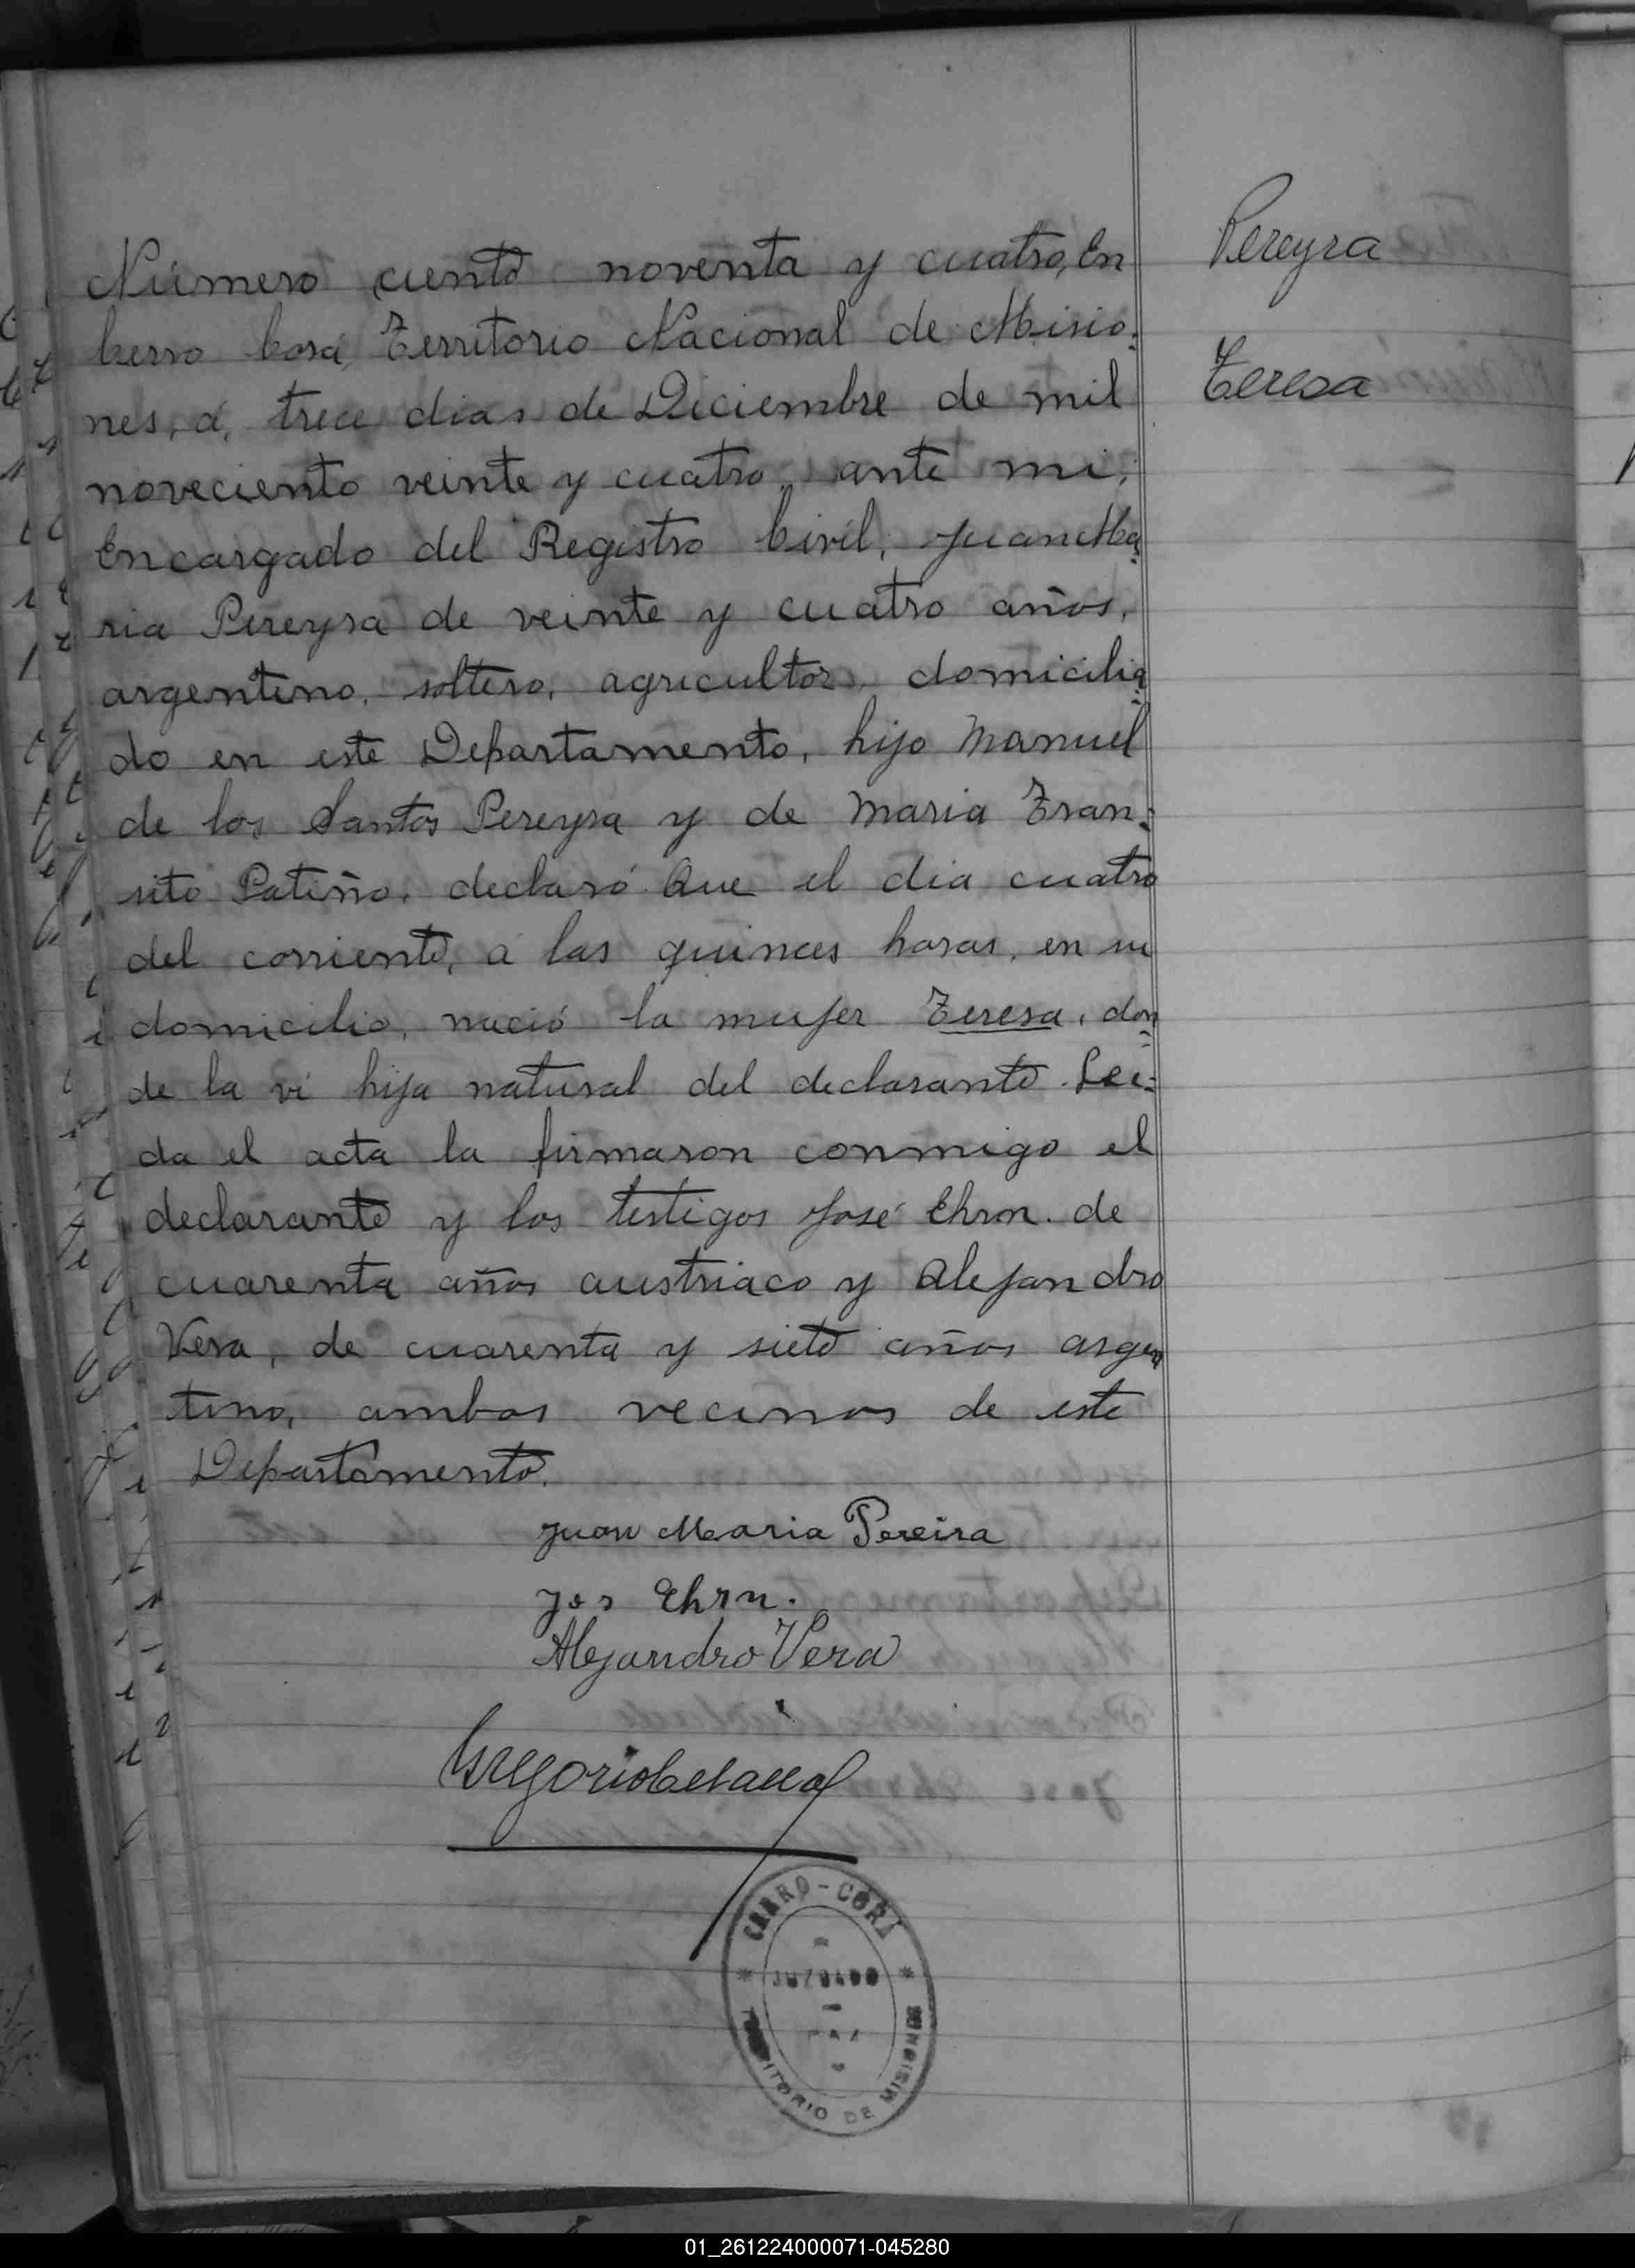 Número ciento noventa y cuatro, En
Cerro Corá, Territorio Nacional de Misio=
nes, á, trece dias de Diciembre de mil
noveciento veinte y cuatro, ante mi,
Encargado del Registro Civil, Juan Ma
ria Pereyra de veinte y cuatro años,
argentino, soltero, agricultor, domicilia
do en este Departamento, hijo Manuel
de los Santos Pereyra y de Maria Tran=
sito Patiño, declaró: Que el dia cuatro
del corriente, á las quinces horas, en su
domicilio, nació la mujer Teresa, don
de la vi hija natural del declarante. Lei=
da el acta la firmaron conmigo el
declarante y los testigos José Ehrn. de
cuarenta años austriaco y Alejandro
Vera, de cuarenta y siete años argen
tino, ambos vecinos de este
Departamento.
Juan Maria Pereira
Jos Ehrn.
Alejandro Vera
Gregorio
CERRO-CORÁ
* JUZGADO *
PAZ
TERRITORIO DE MISIONES
Pereyra
Teresa
01_261224000071-045280